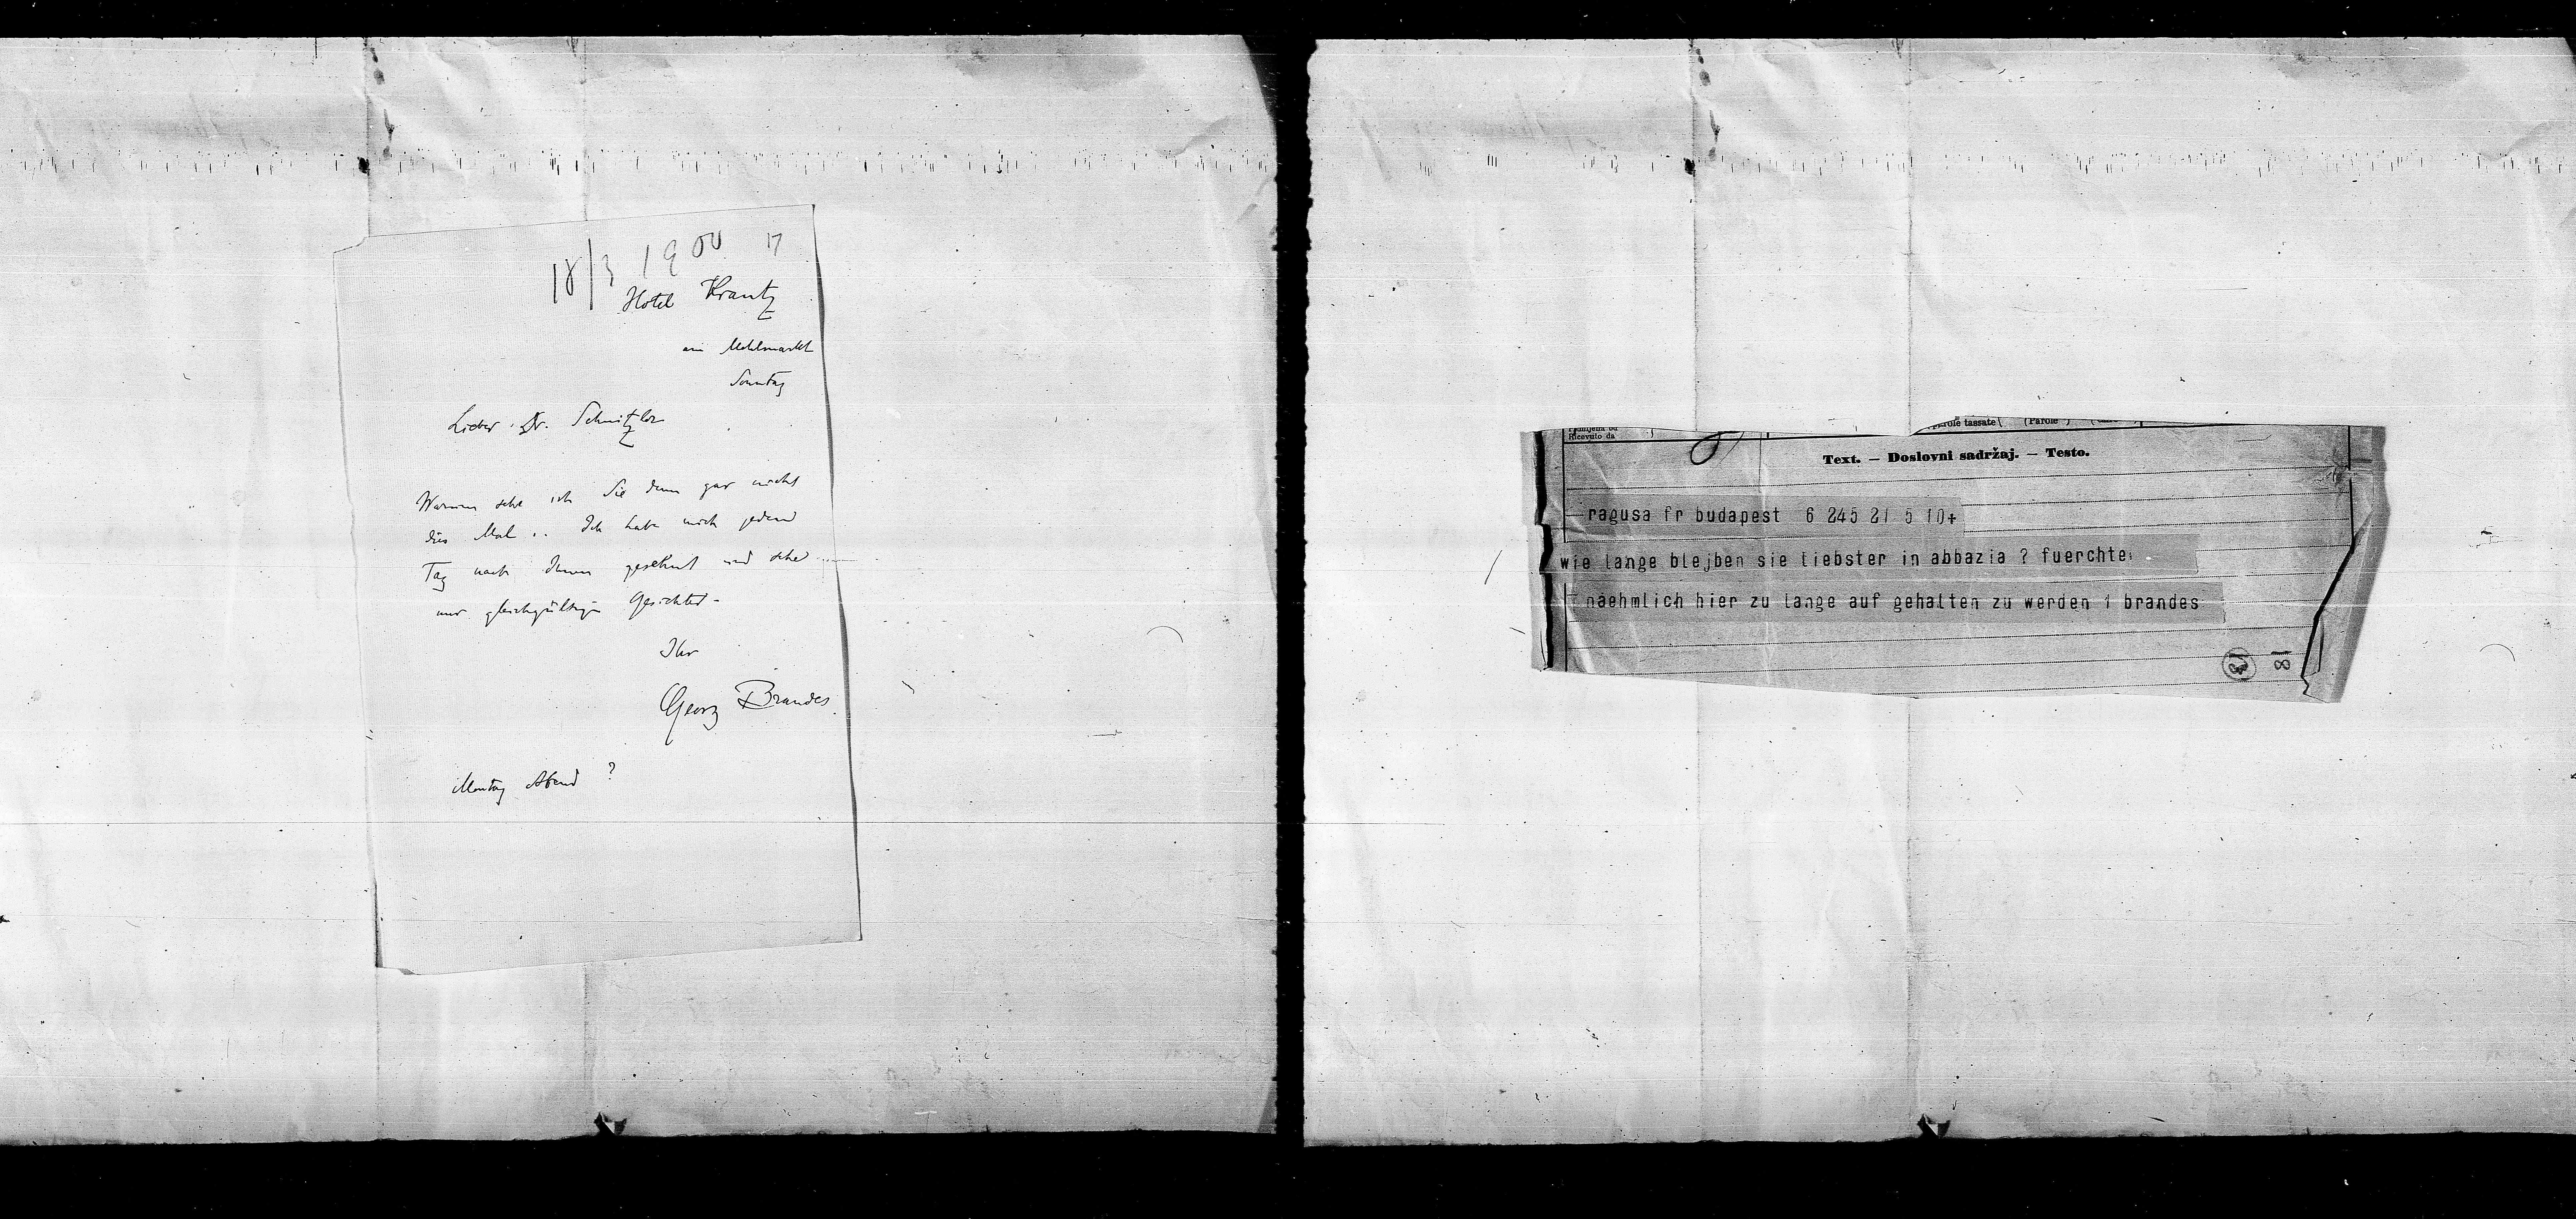 18/3 1900 17
Hotel Krantz
am Mehlmarkt
Sonntag
Lieber Dr. Schnitzler
Warum sehe ich Sie denn gar nicht
dies Mal.. Ich habe mich jeden
Tag nach Ihnen gesehnt und sehe
nur gleichgültige Gesichter –
Ihr
Georg Brandes.
Montag Abend ?
Ricevuto da
Parole tassate (Parole
Text. — Doslovni sadržaj. — Testo.
ragusa fr budapest 6 245 21 5 10+
wie lange blejben sie liebster in abbazia ? fuerchte
naehmlich hier zu lange auf gehalten zu werden 1 brandes
18